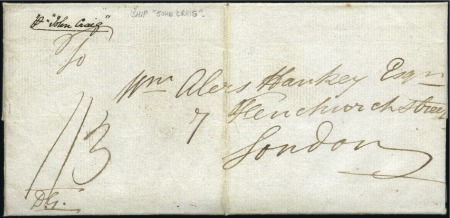 pr "John Craig"
SHIP "JOHN CRAIG".
To
Wm Alers Hankey Esqr
7 Fenchurch Street
London
1/3